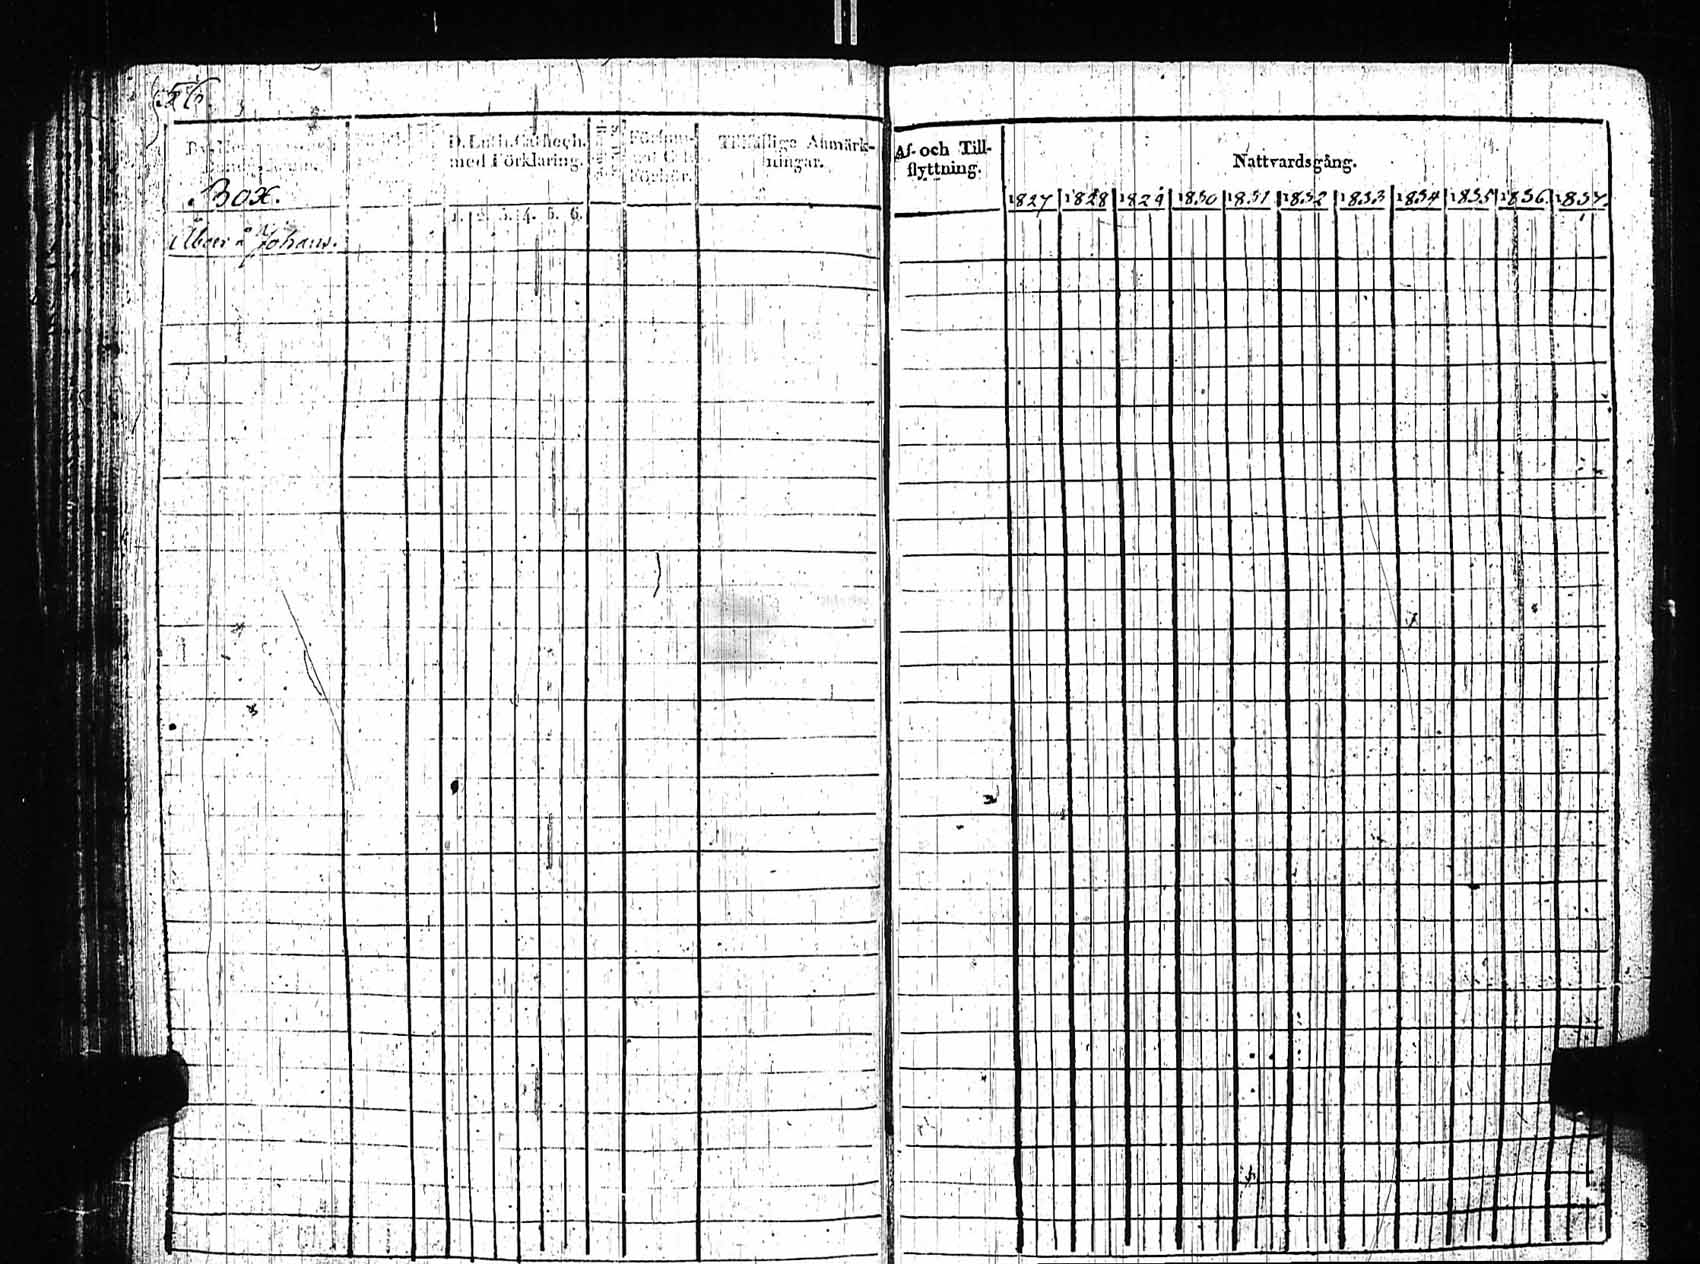 56
D. Luth. Cathech.
med Förklaring.
Tillfällige Anmärk-
ningar.
Box.
1. 2. 3. 4. 5. 6.
Åbor å Johans.
Af- och Till-
flyttning.
Nattvardsgång.
1827 1828 1829 1830 1831 1832 1833 1834 1835 1836 1837